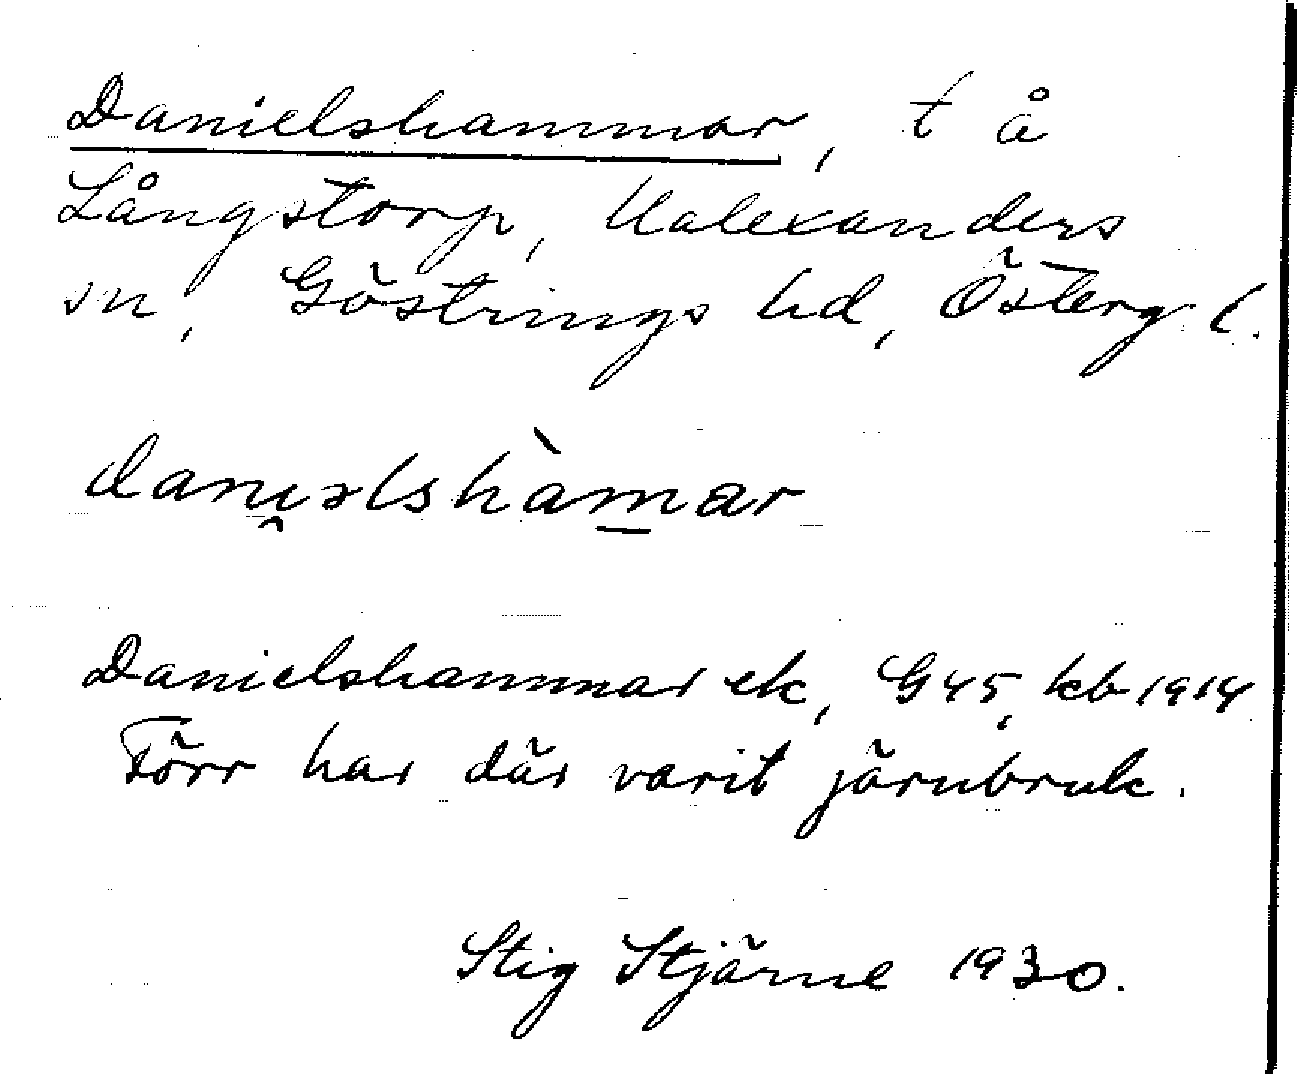 Danielshammar, t å
Långstorp, Ualexanders
sn, Göstrings hd, Österg. l.
daniəlshàmar
Danielshammar ek, G45, kb 1914
Förr har där varit järnbruk.
Stig Stjärne 1930.